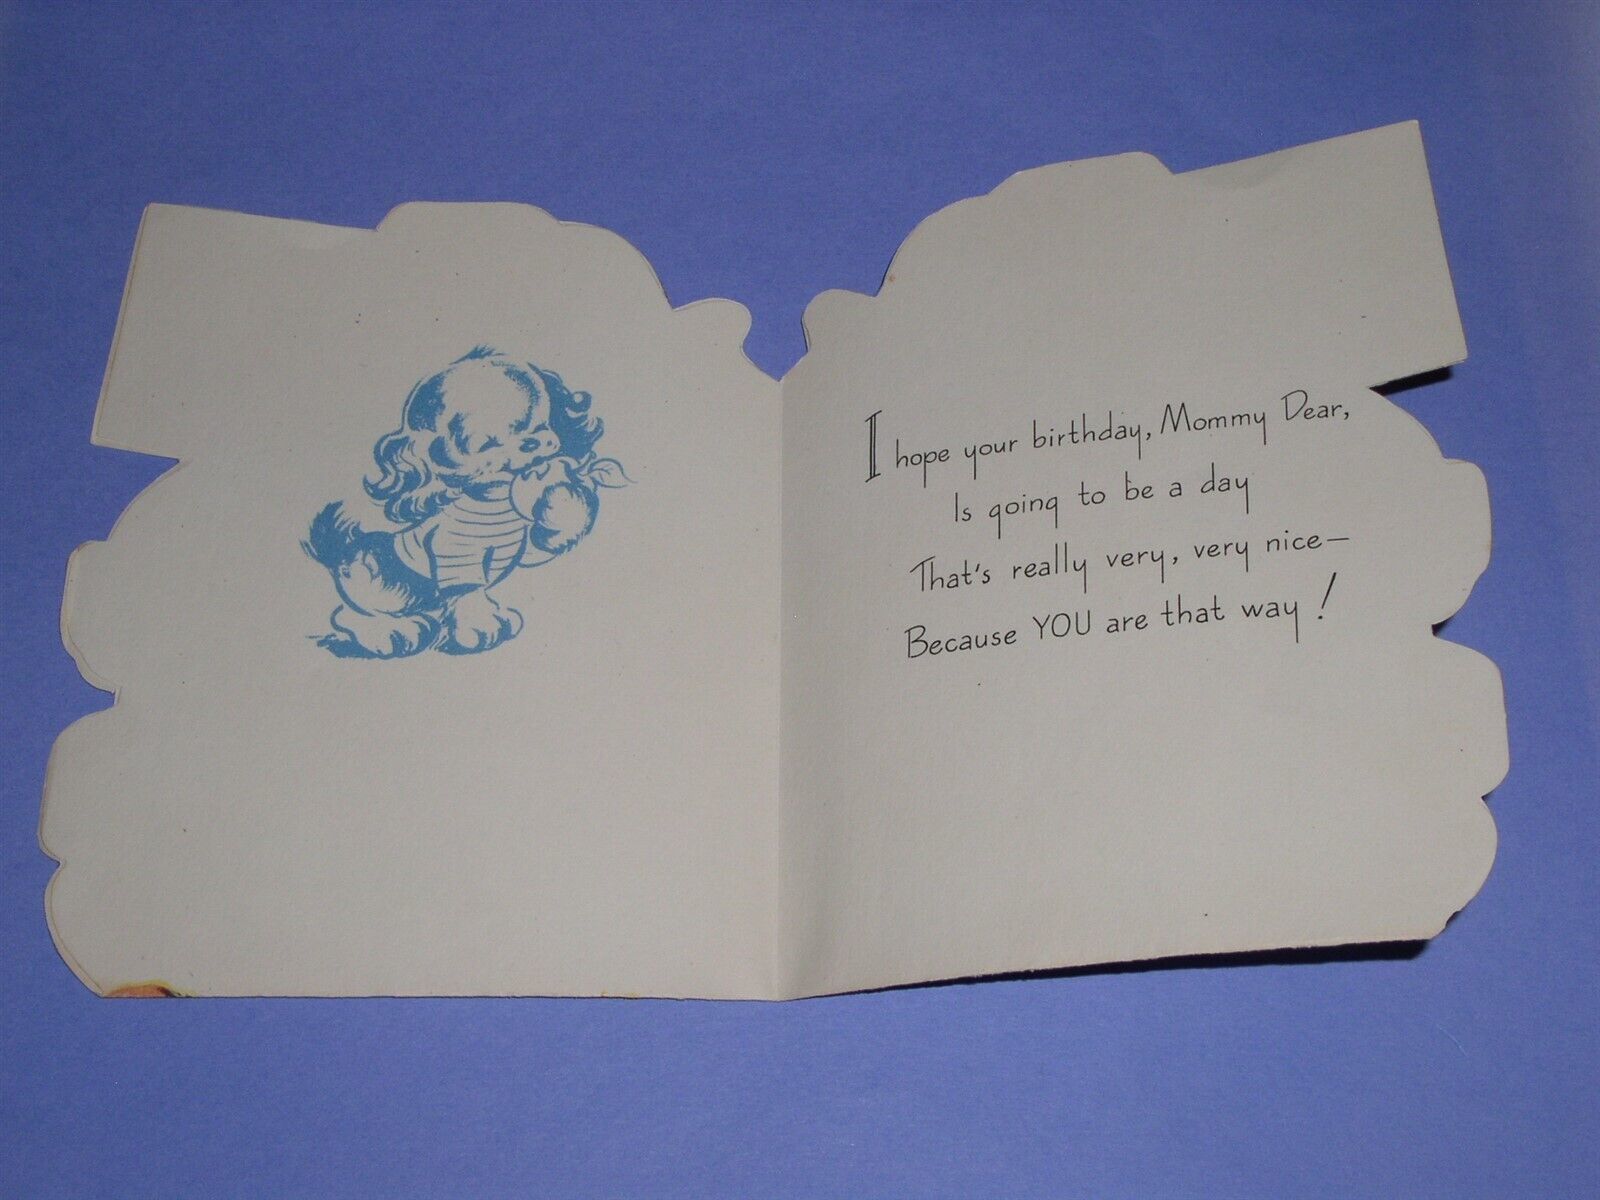 I hope your birthday, Mommy Dear,
Is going to be a day
That's really very, very nice—
Because YOU are that way!